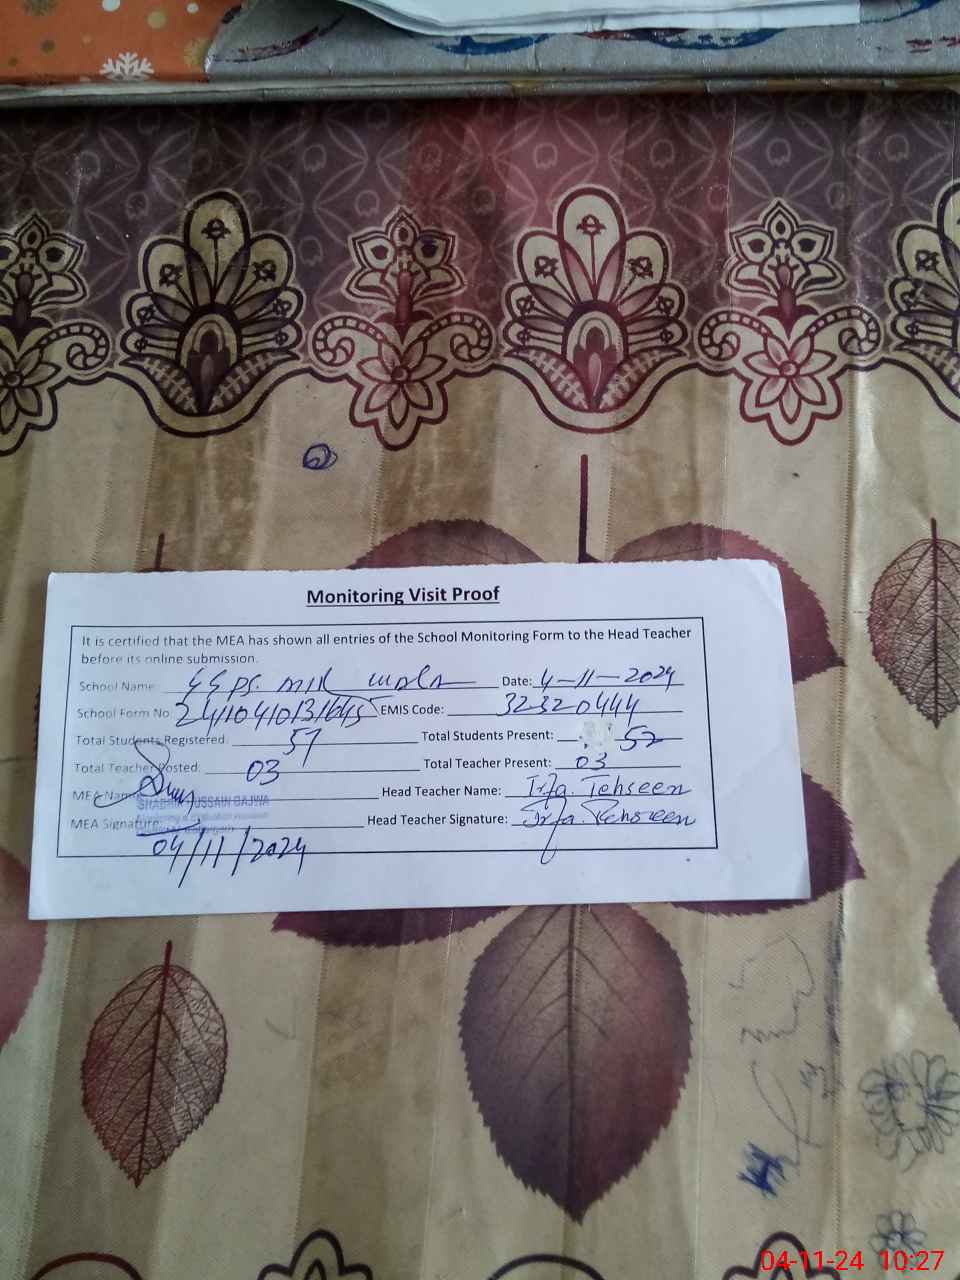 Monitoring Visit Proof
It is certified that the MEA has shown all entries of the School Monitoring Form to the Head Teacher
before its online submission.
School Name: GGPS. Date: 4-11-2024
School Form No: 2411041013/645 EMIS Code: 32320444
Total Students Registered: 57 Total Students Present: 52
Total Teacher Posted: 03 Total Teacher Present: 03
MEA Name: Head Teacher Name: Irfa. Tehseen
HUSSAIN GAJWA
MEA Signature: Head Teacher Signature: Irfa. Tehseen
04/11/2024
04-11-24 10:27